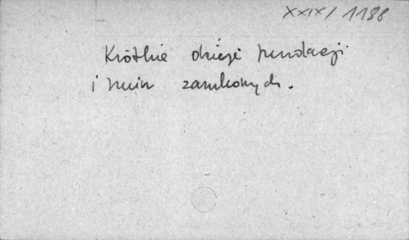 XXIX/1188
Krótkie dzieje fundacji
i ruin zamkowych.